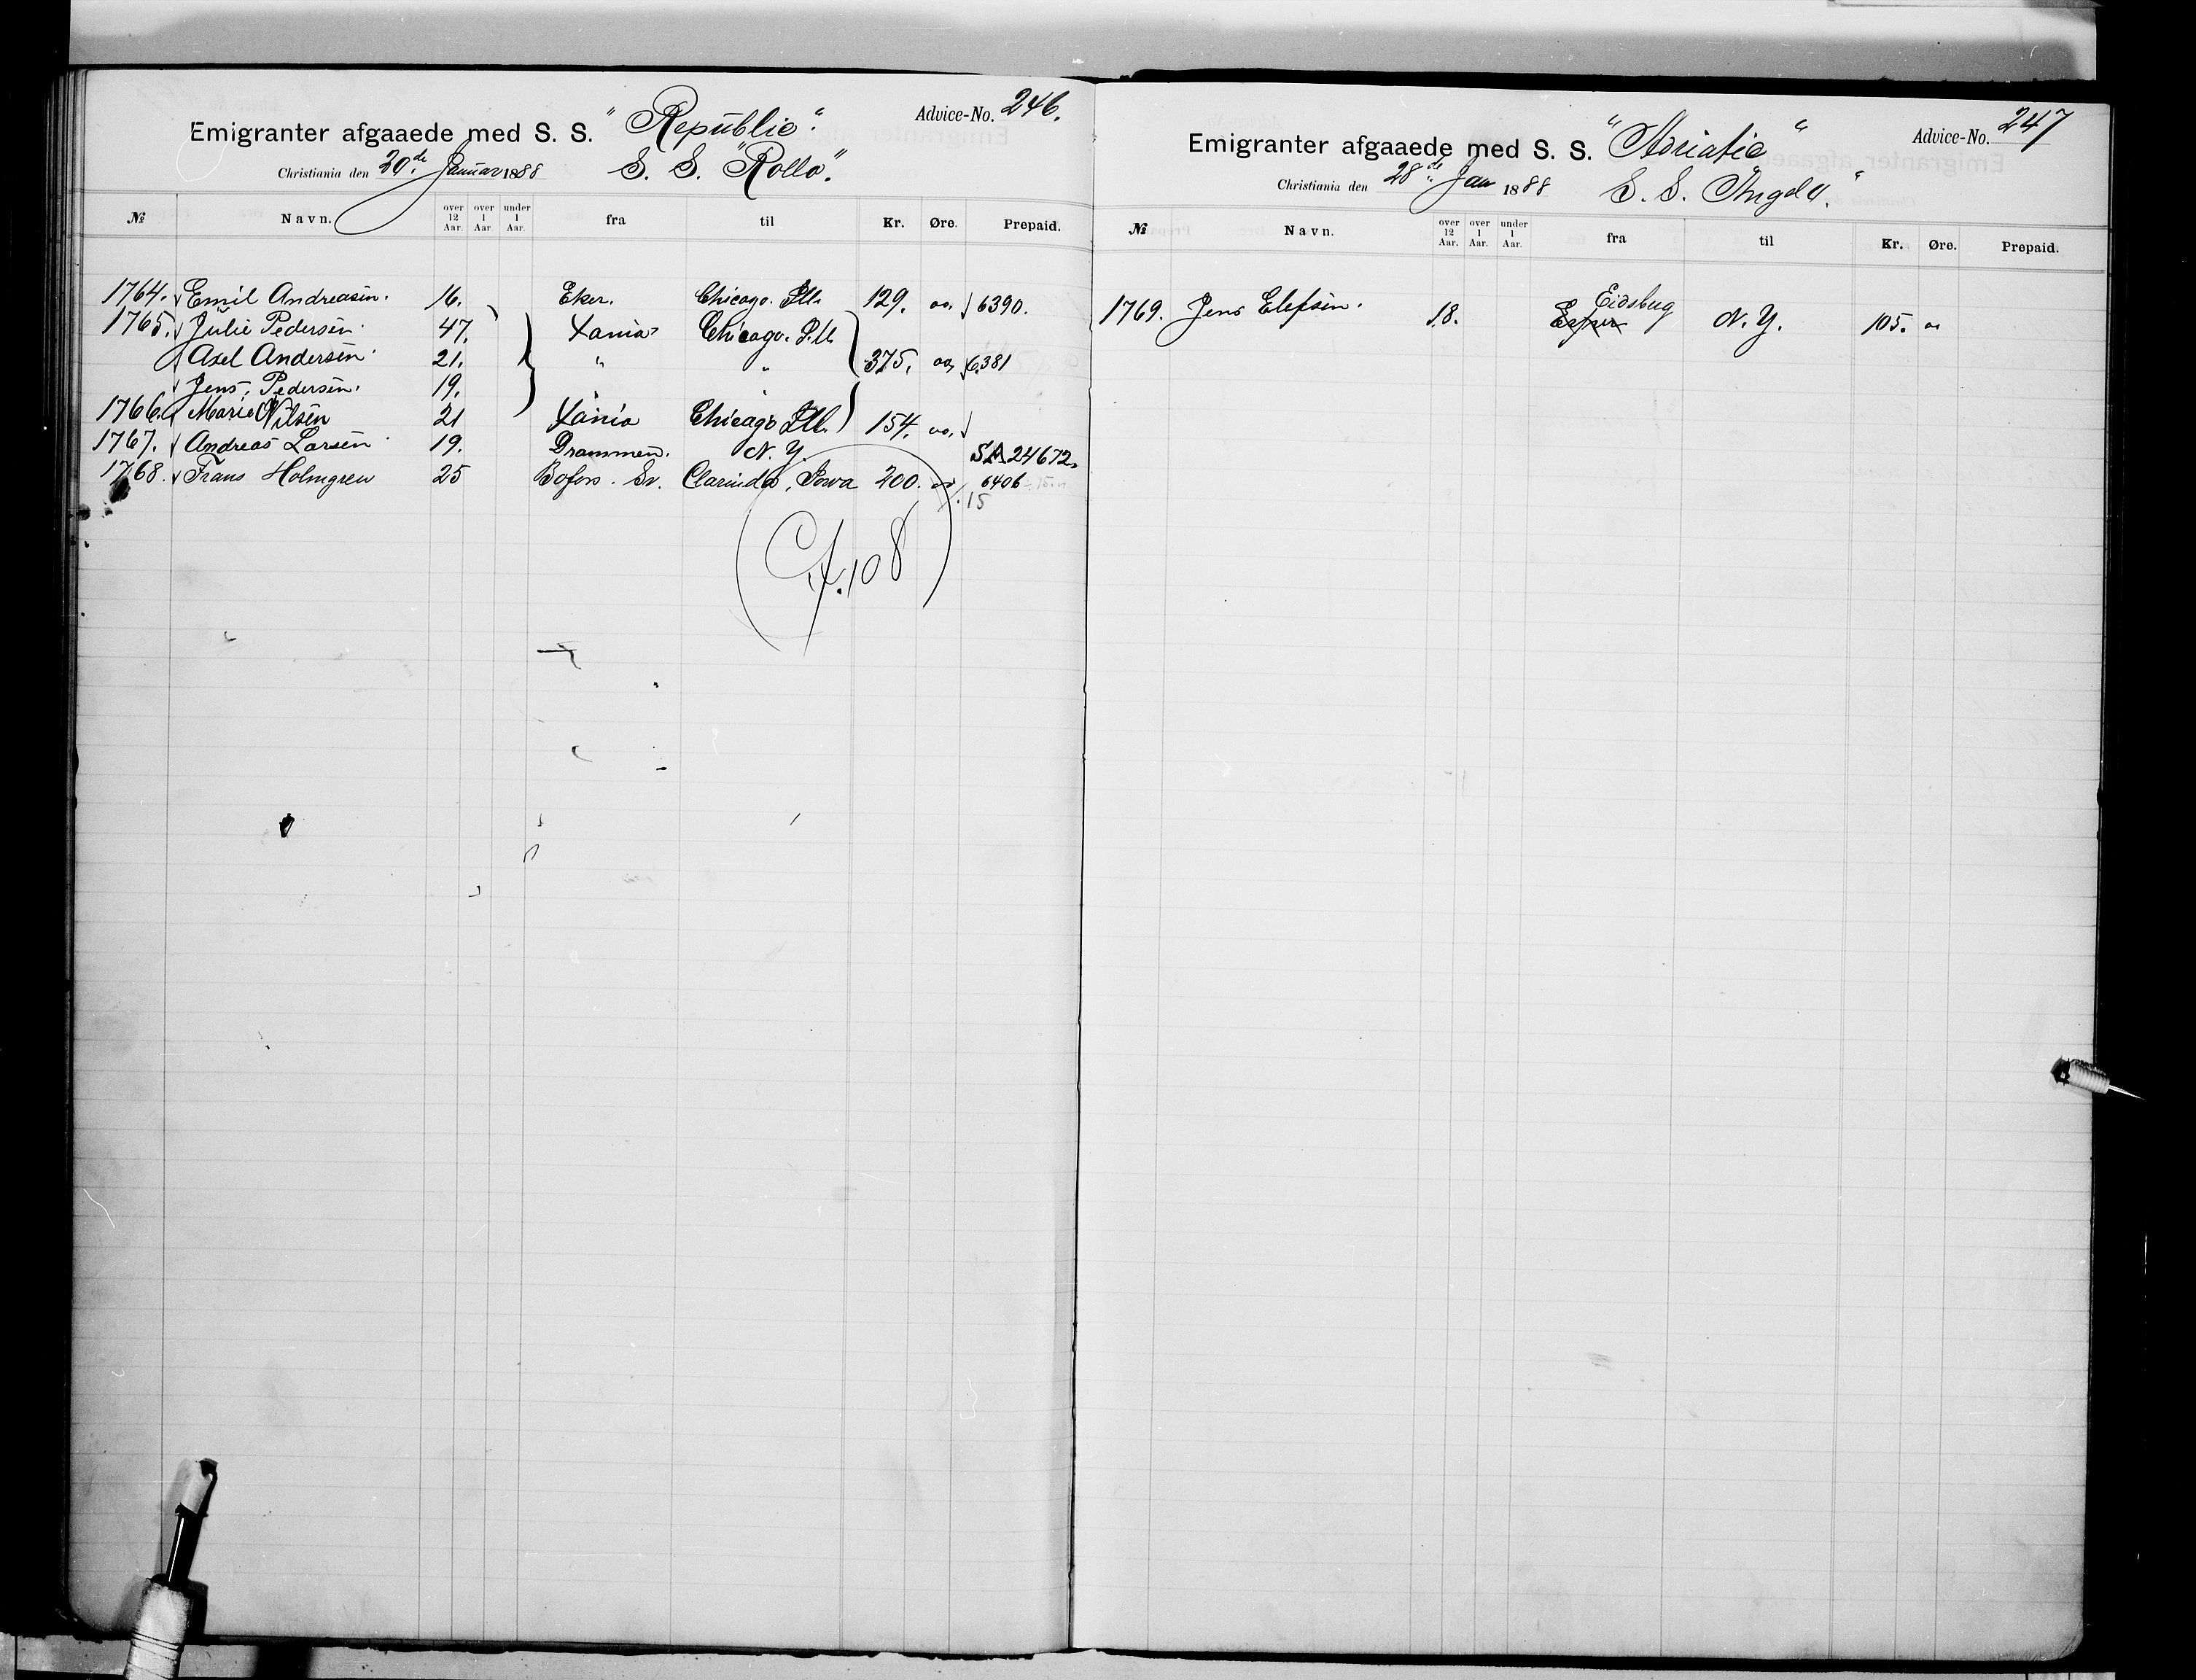 Emigranter afgaaede med S. S. "Republic". Advice-No. 246.
Christiania den 20de Januar 1888 S. S. "Rollo".
№ Navn. over 12 Aar. over 1 Aar. under 1 Aar. fra til Kr. Øre. Prepaid.
1764. Emil Andreasen. 16. Eker. Chicago. Ill. 129. oo. 6390.
1765. Julie Pedersen. 47. Xania Chicago. Ill.
Axel Andersen 21. " " 375. oo, 6381
Jens Pedersen. 19.
1766. Marie Nilsen 21 Xania Chicago Ill. 154. oo.
1767. Andreas Larsen 19. Drammen. N. Y. SA 24672.
1768. Frans Holmgren 25 Bofors. Sv. Clarinda, Iowa 200. oo 6406
15
Cf. 108
Emigranter afgaaede med S. S. "Adriatic" Advice-No. 247
Christiania den 28de Jan 1888 S. S. Angelo.
№ Navn. over 12 Aar. over 1 Aar. under 1 Aar. fra til Kr. Øre. Prepaid.
1769. Jens Elefsen. 18. Eidsbug N. Y. 105. oo